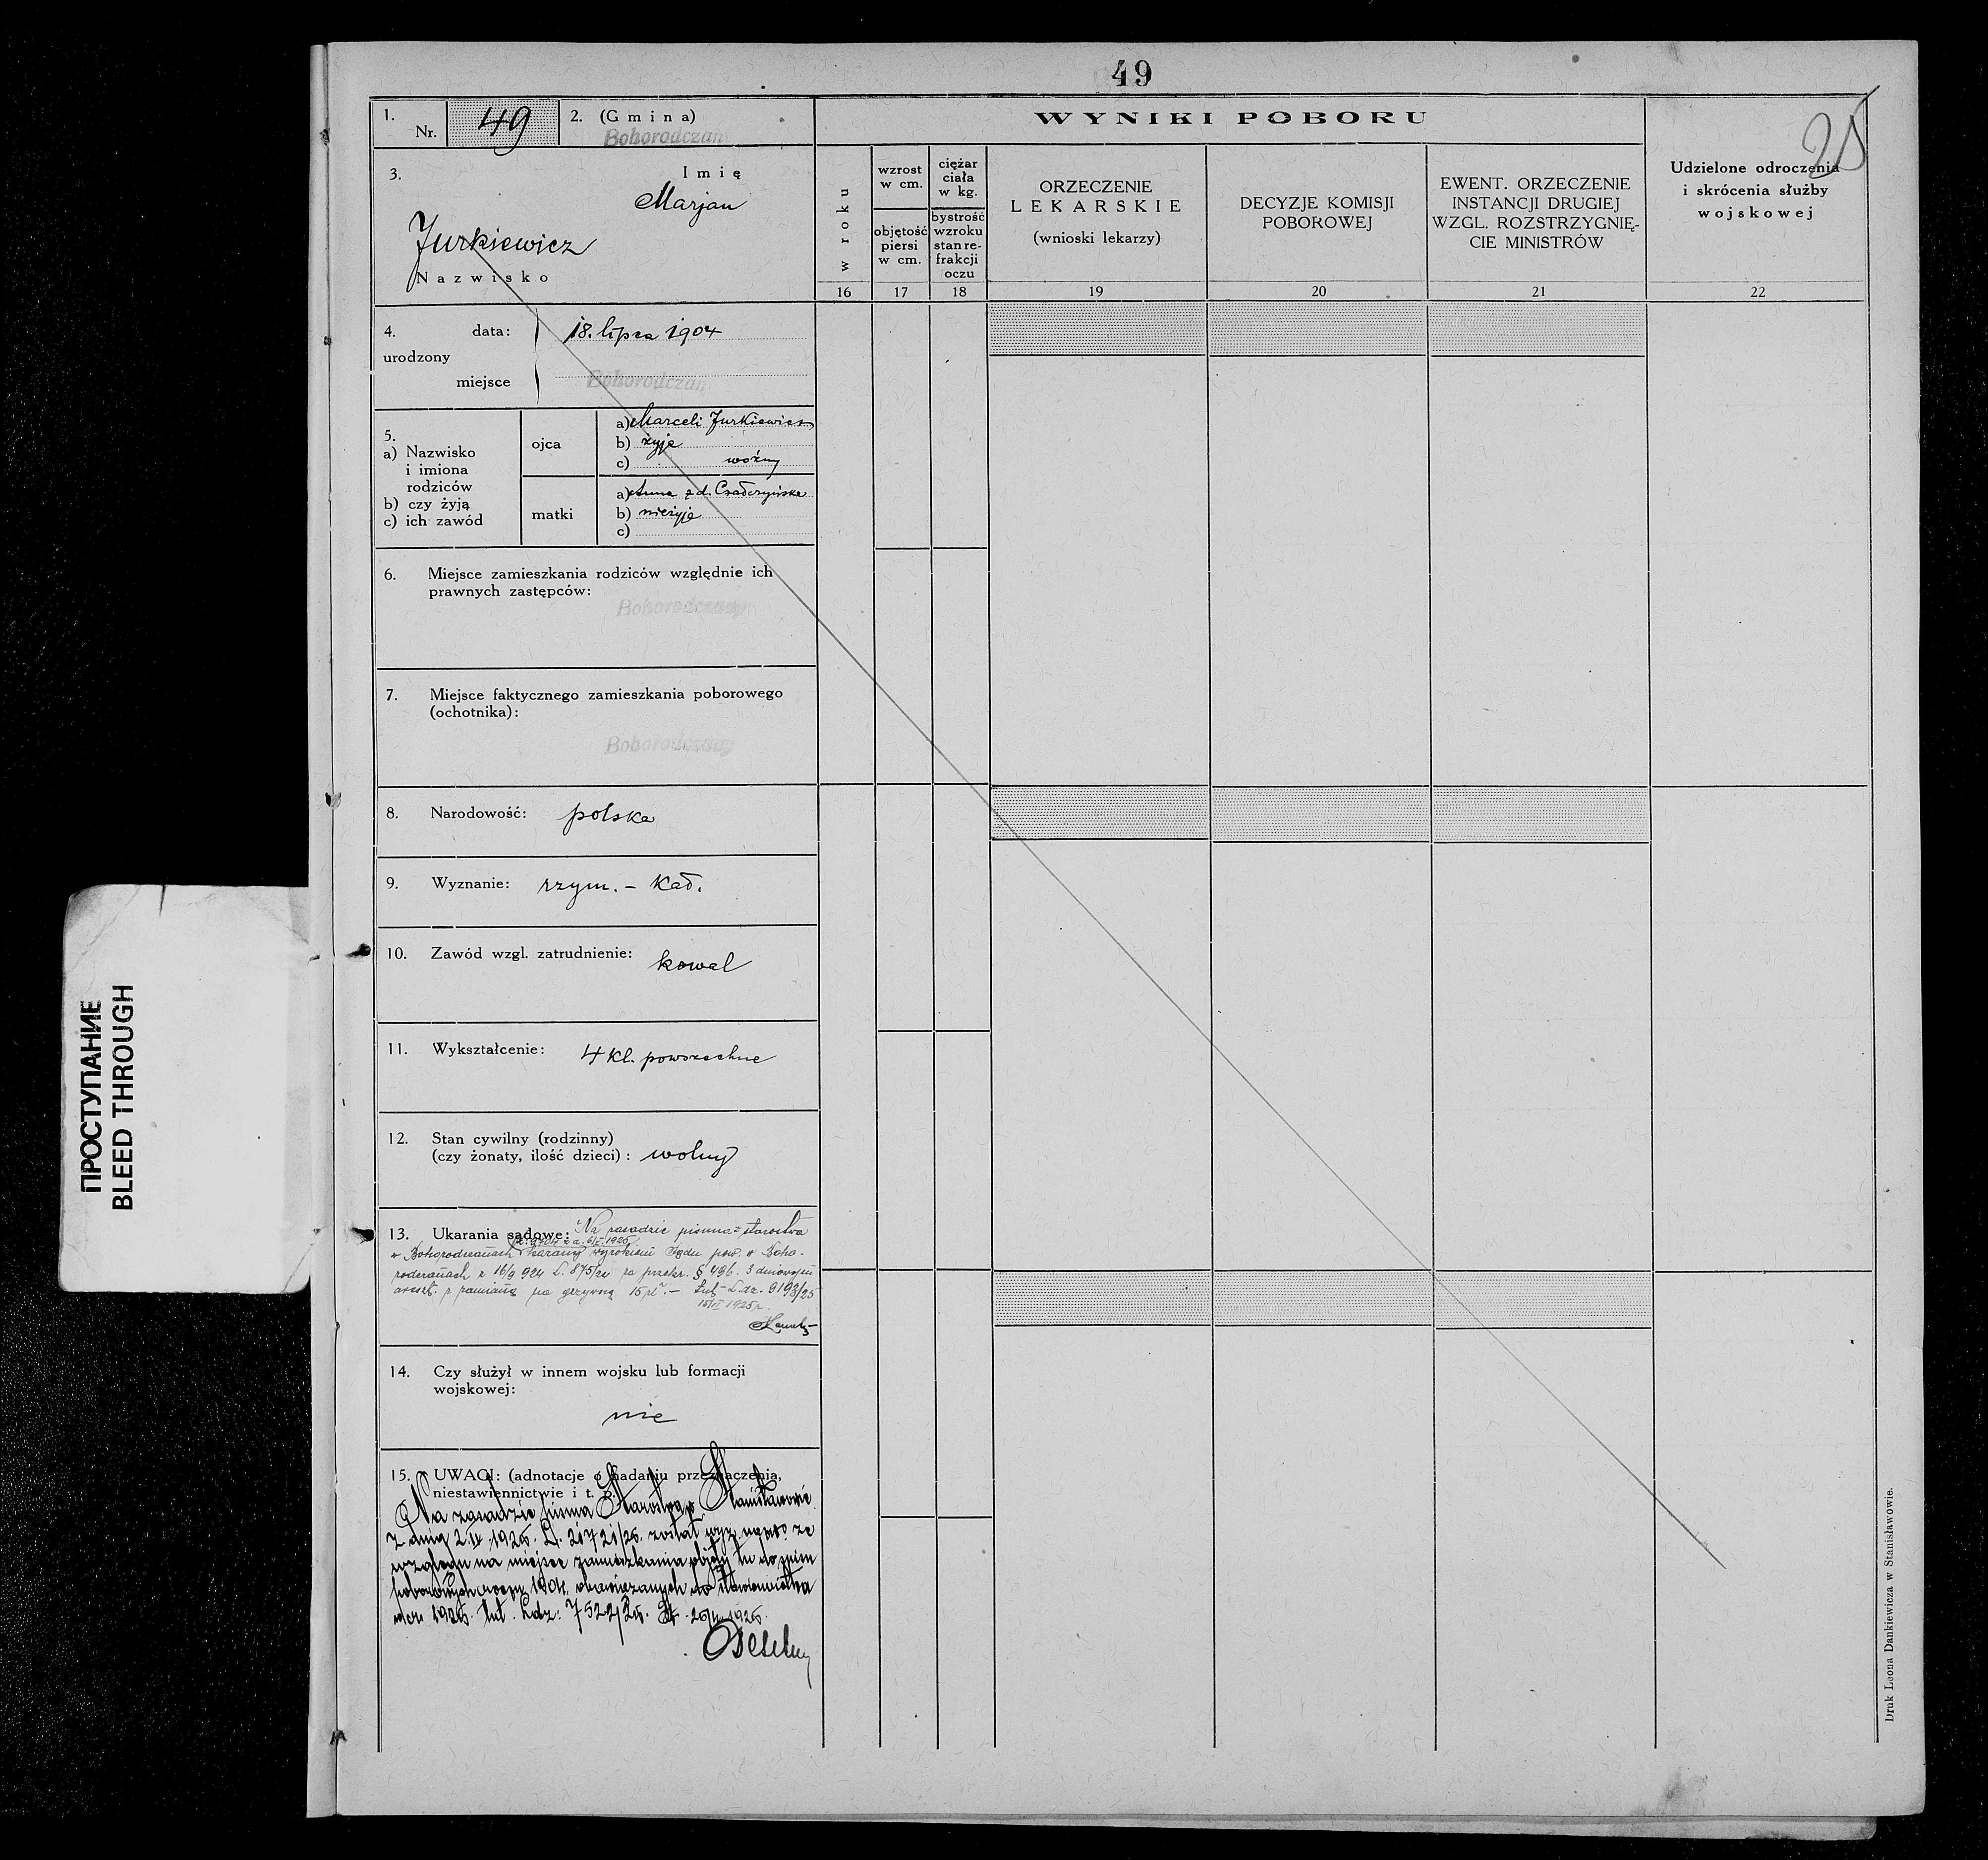 49
1. Nr. 49
2. (Gmina)
Bohorodczan
3. Imię
Marjan
Jurkiewicz
Nazwisko
4. urodzony
data: 18. lipca 1904
miejsce Bohorodczan
5.
a) Nazwisko
i imiona
rodziców
b) czy żyją
c) ich zawód
ojca
a) Marceli Jurkiewicz
b) żyje
c) woźny
matki
a) Anna zd.
b) nieżyje
c)
6. Miejsce zamieszkania rodziców względnie ich
prawnych zastępców:
Bohorodczany
7. Miejsce faktycznego zamieszkania poborowego
(ochotnika):
Bohorodczany
8. Narodowość: polska
9. Wyznanie: rzym. – kat.
10. Zawód wzgl. zatrudnienie: kowal
11. Wykształcenie: 4 kl. powszechne
12. Stan cywilny (rodzinny)
(czy żonaty, ilość dzieci): wolny
13. Ukarania sądowe: Na zasadzie pisma starostwa
w Bohorodczanach karany wyrokiem Sądu pow. w Boho-
rodczanach z 16/9 924 L. 875/24 za przekr. § 496. 3 dniowym
areszt. z zamianą na grzywną 15 zł. – tut. L.dz. 9193/25
1925 r.
14. Czy służył w innem wojsku lub formacji
wojskowej:
nie
15. UWAGI: (adnotacje o nadaniu przeznaczenia,
niestawiennictwie i t. p.
Na zasadzie pisma Starostwa w Stanisławowie
z dnia 2.IV 1925. L. 21721/25. został wyż. wym. ze
względu na miejsce zamieszkania objęty tu do spisu
poborowych roczn. 1904. obowiązanych do stawiennictwa
w r. 1925. tut. Ldz: 7522/25. 1925.
WYNIKI POBORU
w roku
16
wzrost
w cm.
objętość
piersi
w cm.
17
ciężar
ciała
w kg.
bystrość
wzroku
stan re-
frakcji
oczu
18
ORZECZENIE
LEKARSKIE
(wnioski lekarzy)
19
DECYZJE KOMISJI
POBOROWEJ
20
EWENT. ORZECZENIE
INSTANCJI DRUGIEJ
WZGL. ROZSTRZYGNIĘ-
CIE MINISTRÓW
21
Udzielone odroczenia
i skrócenia służby
wojskowej
22
Druk Leona Dankiewicza w Stanisławowie.
ПРОСТУПАНИЕ
BLEED THROUGH